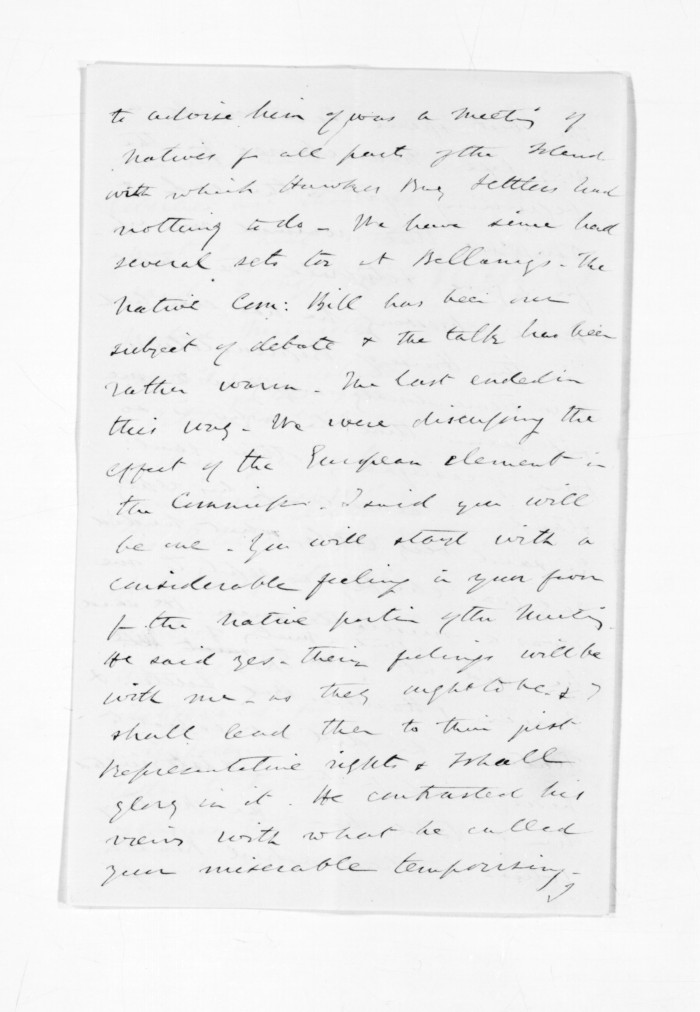 to advise him of was a Meeting of
Natives fr all parts of the Island
with which Hawkes Bay Settlers had
nothing to do - We have since had
several sets too at Bellamys - The
Native Com: Bill has been our
subject of debate & the talk has been
rather warm - The last ended in
this way - We were discussing the
effect of the European element in
the Commissn. I said you will
be one - You will start with a
considerable feeling in your favor
fr the Native portion of the Meeting.
He said yes - their feelings will be
with me - as they ought to be & I
shall lead them to their just
Representative rights & I shall
glory in it. He contrasted his
views with what he called
your miserable temporising -